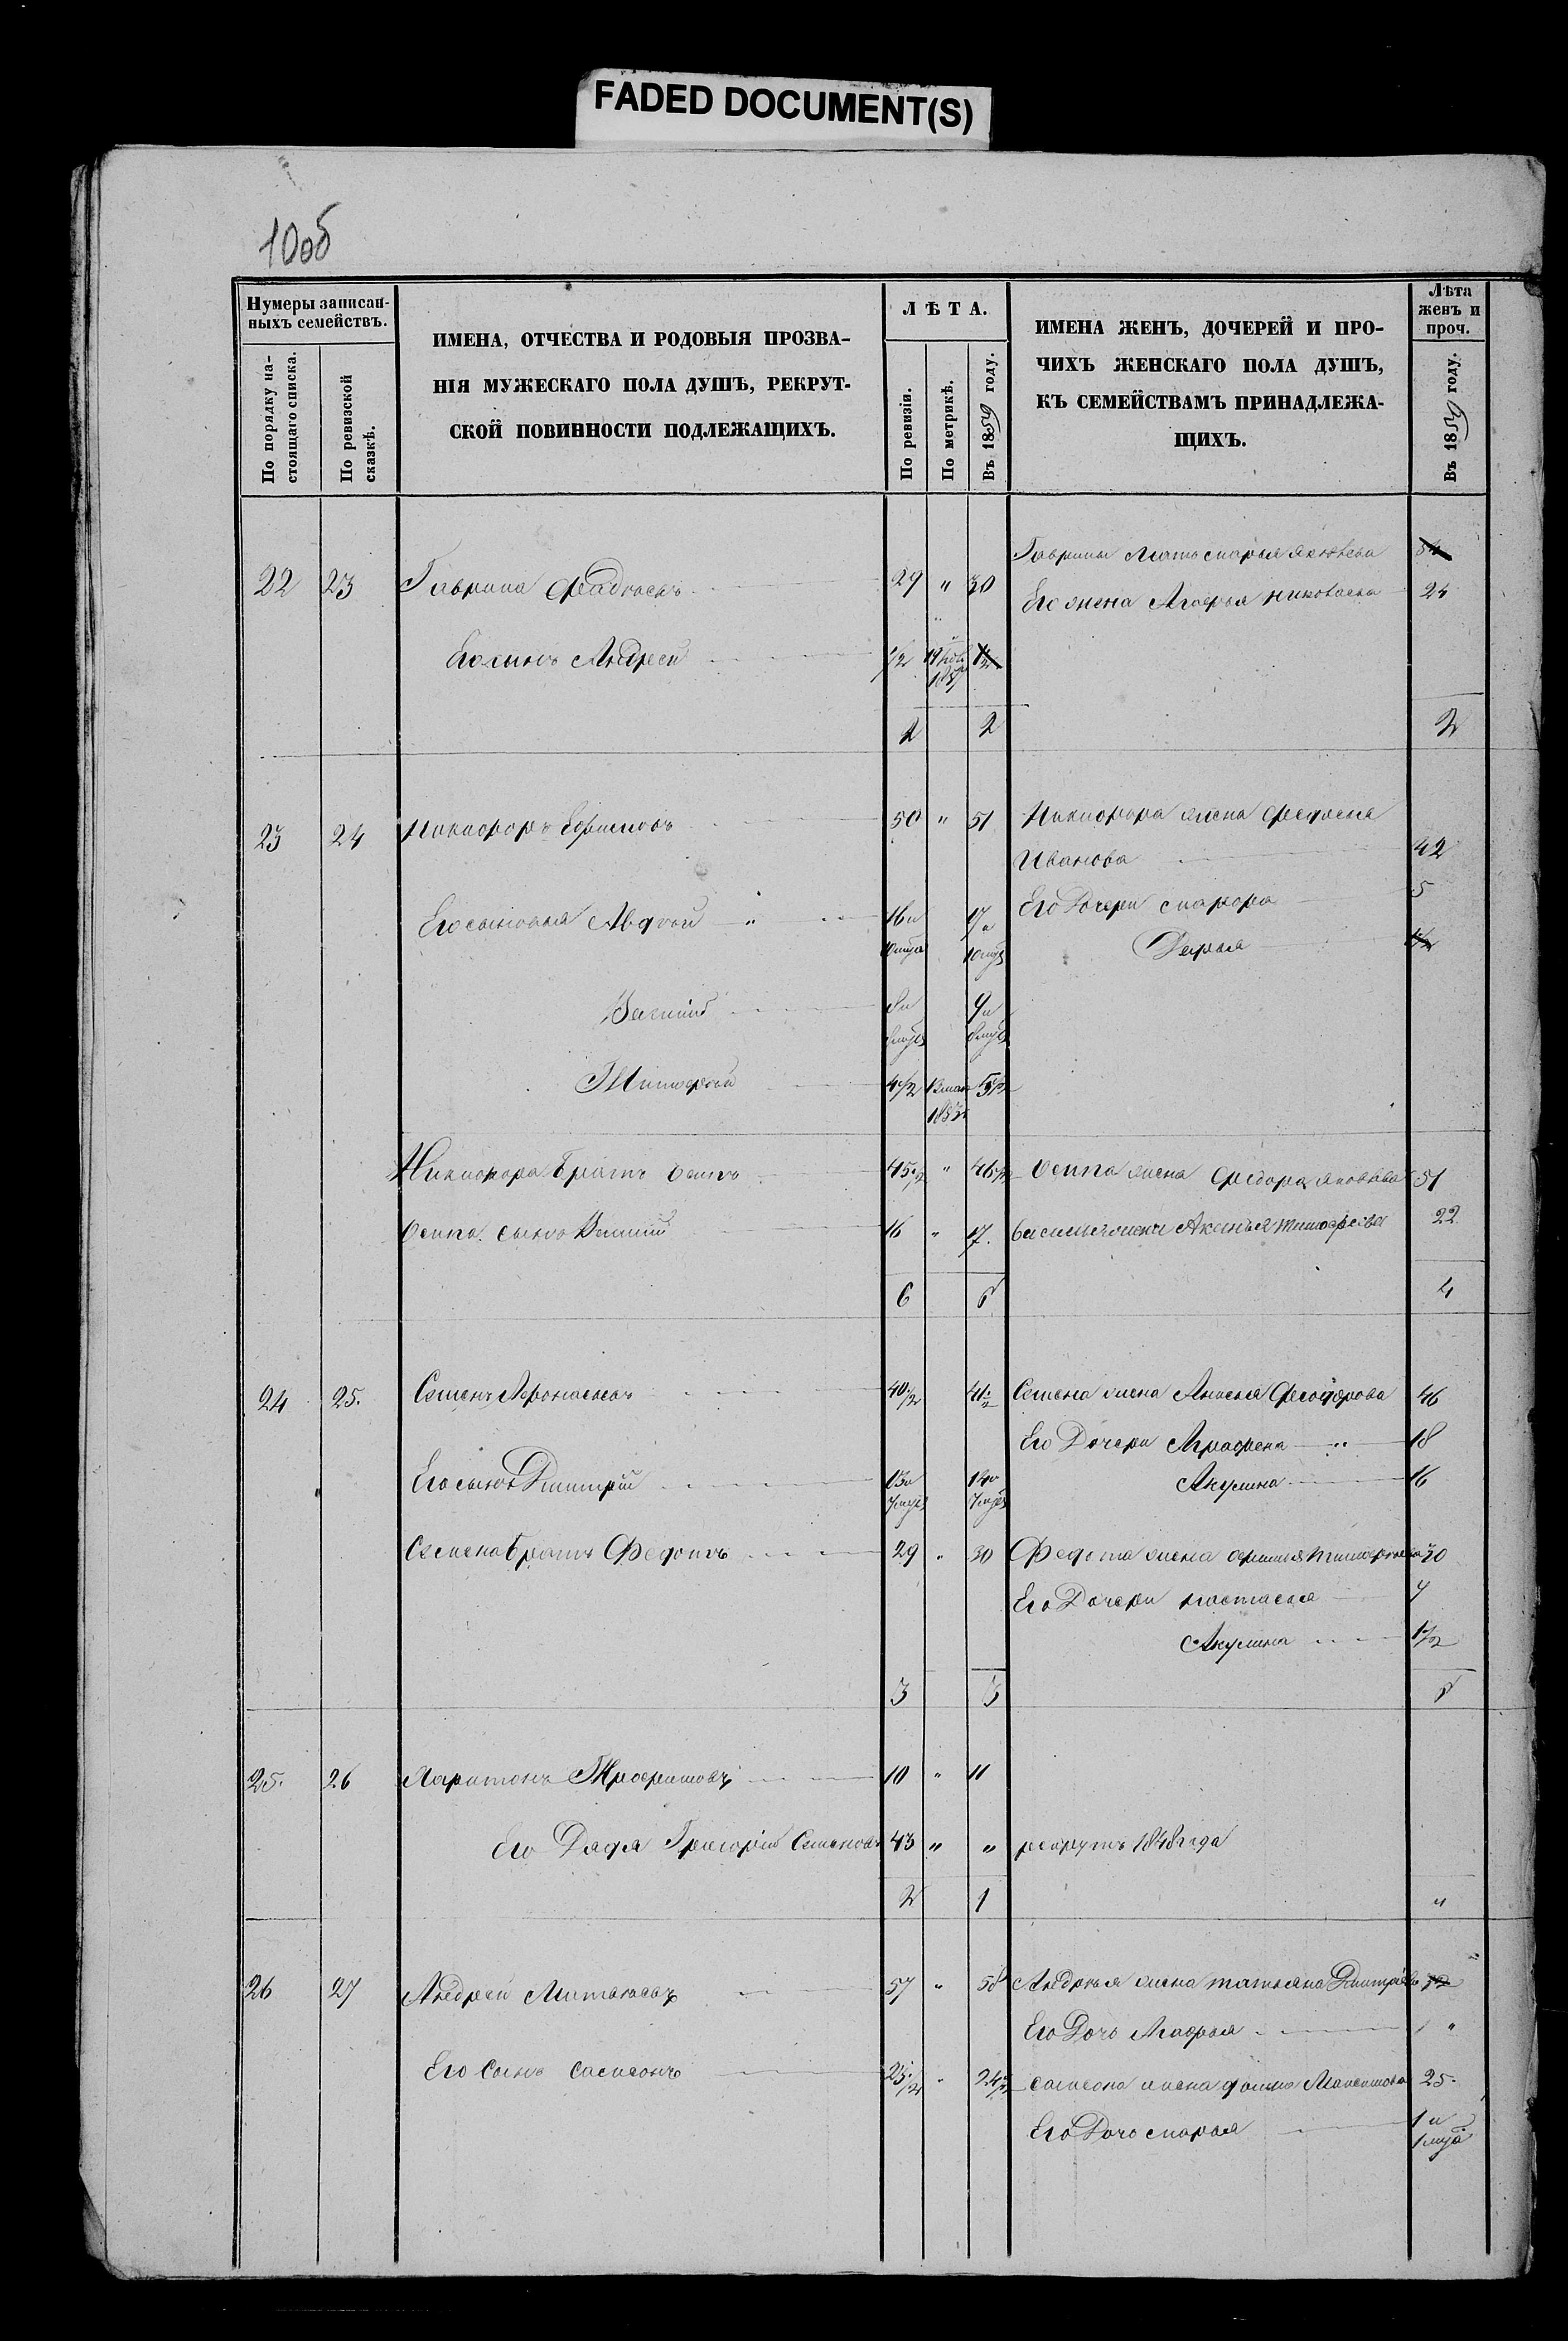 FADED DOCUMENT(S)
10об
Нумеры записан-
ныхъ семействъ.
По порядку на-
стоящаго списка.
По ревизской
сказкѣ.
ИМЕНА, ОТЧЕСТВА И РОДОВЫЯ ПРОЗВА-
НІЯ МУЖЕСКАГО ПОЛА ДУШЪ, РЕКРУТ-
СКОЙ ПОВИННОСТИ ПОДЛЕЖАЩИХЪ.
ЛѢТА.
По ревизіи.
По метрикѣ.
Въ 1859 году.
ИМЕНА ЖЕНЪ, ДОЧЕРЕЙ И ПРО-
ЧИХЪ ЖЕНСКАГО ПОЛА ДУШЪ,
КЪ СЕМЕЙСТВАМЪ ПРИНАДЛЕЖА-
ЩИХЪ.
Лѣта
женъ и
проч.
Въ 1859 году.
Гаврилы мать марья яковлева
22 23 Гаврила Фадѣевъ 29 " 30
Его жена Агафья николаева 24
Его сынъ Андрей 1/2 1857
2 2 2
23 24 Никифоръ 50 " 51 Никифора жена Федосья
Иванова 42
Его сыновья Авдѣй 16 и 17 и Его Дочери 5
10 мцѣ 10 мцѣ Дарья
Василій 8 и 9 и
8 мцѣ 8 мцѣ
Тимофей 4 1/2 5 1/2
Никифора братъ осипъ 45 1/2 " 46 1/2 осипа жена Федора яковлева 51
осипа сынъ Василій 16 " 17. василья жена Аксинья тимофеева 22
6 6 4
24 25. Семенъ Афонасьевъ 40 1/2 41 1/2 Семена жена Федорова 46
Его Дочери Аграфена 18
Его сынъ Дмитрій 13 и 14 и Акулина 16
7 мцѣ 7 мцѣ
Семена братъ Федотъ 29 " 30 Федота жена тимофеева 30
Его Дочери настасья 7
Акулина 1 1/2
3 3 6
25. 26 Харитонъ Трофимовъ 10 " 11
Его Дядя Григорій Семеновъ 43 " " рекрутъ 1848 года
2 1 "
26 27 Андрей Матвѣевъ 57 " 58 Андрея жена татьяна Дмитріева
Его Дочь "
Его Сынъ самсонъ 23 1/2 " 24 1/2 самсона жена Максимова 25.
Его Дочь марья 1 и
1 мцѣ